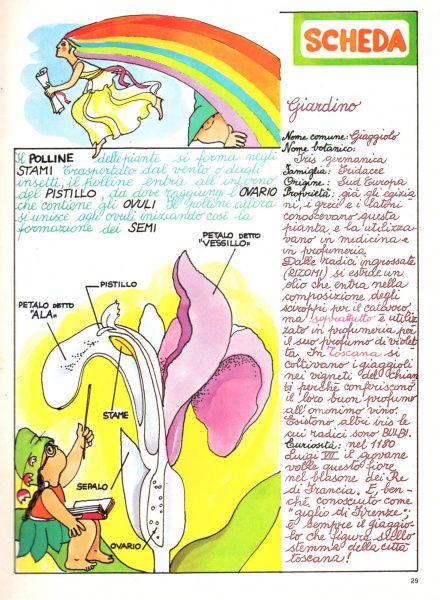 SCHEDA
Giardino
Nome comune: Giaggiolo
Nome botanico:
Iris germanica
Famiglia: Iridacee
Origine: Sud Europa
Proprietà: già gli egizia
ni, i greci e i latini
conoscevano questa
pianta, e la utilizza-
vano in medicina e
in profumeria.
Dalle radici ingrossate
(RIZOMI) si estrae un
olio che entra nella
composizione degli
sciroppi per il catarro,
ma soprattutto è utiliz-
zato in profumeria per
il suo profumo di violet
ta. In Toscana si
coltivano i giaggioli
nei vigneti del Chian
ti perché conferiscono
il loro buon profumo
all'omonimo vino.
Esistono altri iris le
cui radici sono BULBI.
Curiosità: nel 1180
Luigi VII il giovane
volle questo fiore
nel blasone dei Re
di Francia. E, ben-
ché, conosciuto come
"giglio di Firenze";
è sempre il giaggio-
lo che figura sullo
stemma della città
toscana!
Il POLLINE delle piante si forma negli
STAMI. Trasportato dal vento o degli
insetti, il polline entra all'interno
del PISTILLO, da dove raggiunge l'OVARIO
che contiene gli OVULI. Il polline allora
si unisce agli ovuli iniziando così la
formazione dei SEMI
PETALO DETTO
"VESSILLO"
PISTILLO
PETALO DETTO
"ALA"
STAME
SEPALO
OVARIO
29